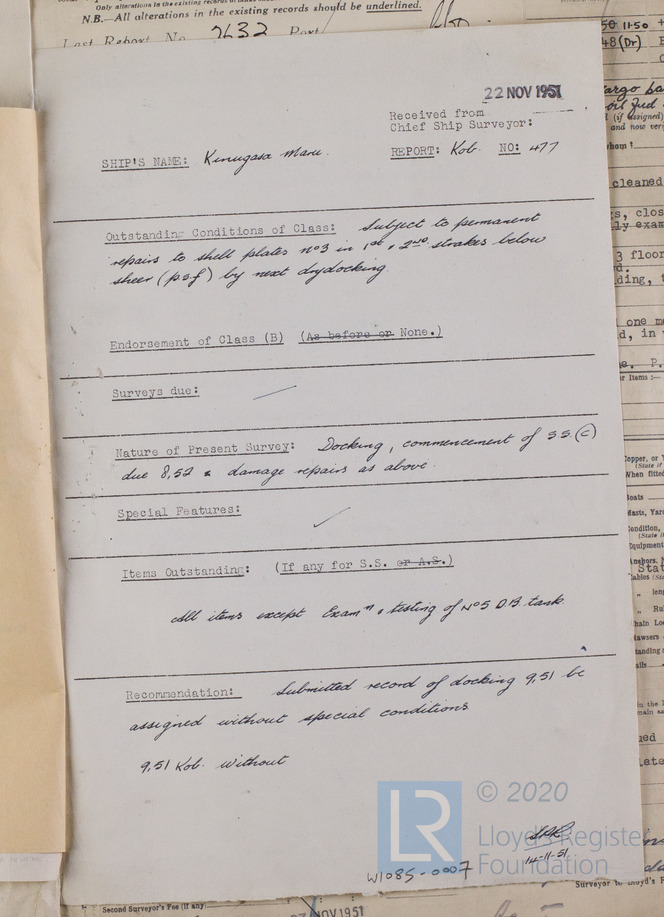 Only alterations in the existing records should be underlined.
N.B.—All alterations in the existing records should be underlined.
Last Report No. 2632 Port
22 NOV 1951
Received from
Chief Ship Surveyor:
SHIP'S NAME: Kinugasa Maru.
REPORT: Kob. NO: 477
Outstanding Conditions of Class: Subject to permanent
repairs to shell plates no 3 in 1st & 2nd strakes below
sheer (p.s.f) by next drydocking.
Endorsement of Class (B) (As before or None.)
Surveys due:
Nature of Present Survey: Docking, commencement of S.S.(C)
due 8,52 & damage repairs as above.
Special Features:
Items Outstanding: (If any for S.S. or A.S.)
All items except Exam n & testing of No 5 D.B. tank.
Recommendation: Submitted record of docking 9,51 be
assigned without special conditions
9,51 Kob. without
© 2020
LR Lloyd's Register
Foundation
14-11-51
W1085-0007
Second Surveyor's Fee (if any)
NOV 1951
Surveyor to Lloyd's